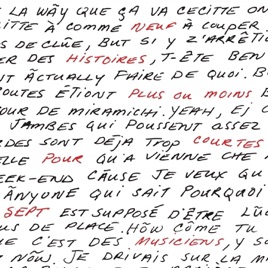 LA WÂY QUE ÇA VA CECITTE ON
ITTE À COMME NEUF À COUPER
S DE CLÛE, BUT SI Y Z'ARRÊTI
ER DES HISTOIRES, T-ÊTE BEN
IT ÂCTUALLY FAIRE DE QUOI. B
OUTES ÉTIONT PLUS OU MOINS
TOUR DE MIRAMICHI. YEAH, EJ
JAMBES QUI POUSSENT ASSEZ
RDES SONT DÉJÀ TROP COURTES
ELLE POUR QU'A VIENNE CHE
EEK-END CAUSE JE VEUX QU
ÂNYONE QUI SAIT POURQUOI
SEPT EST SUPPOSÉ D'ÊTRE LÛC
US DE PLACE. HÔW CÔME TU
UE C'EST DES MUSICIENS, Y S
Y NÔW. JE DRIVAIS SUR LA M